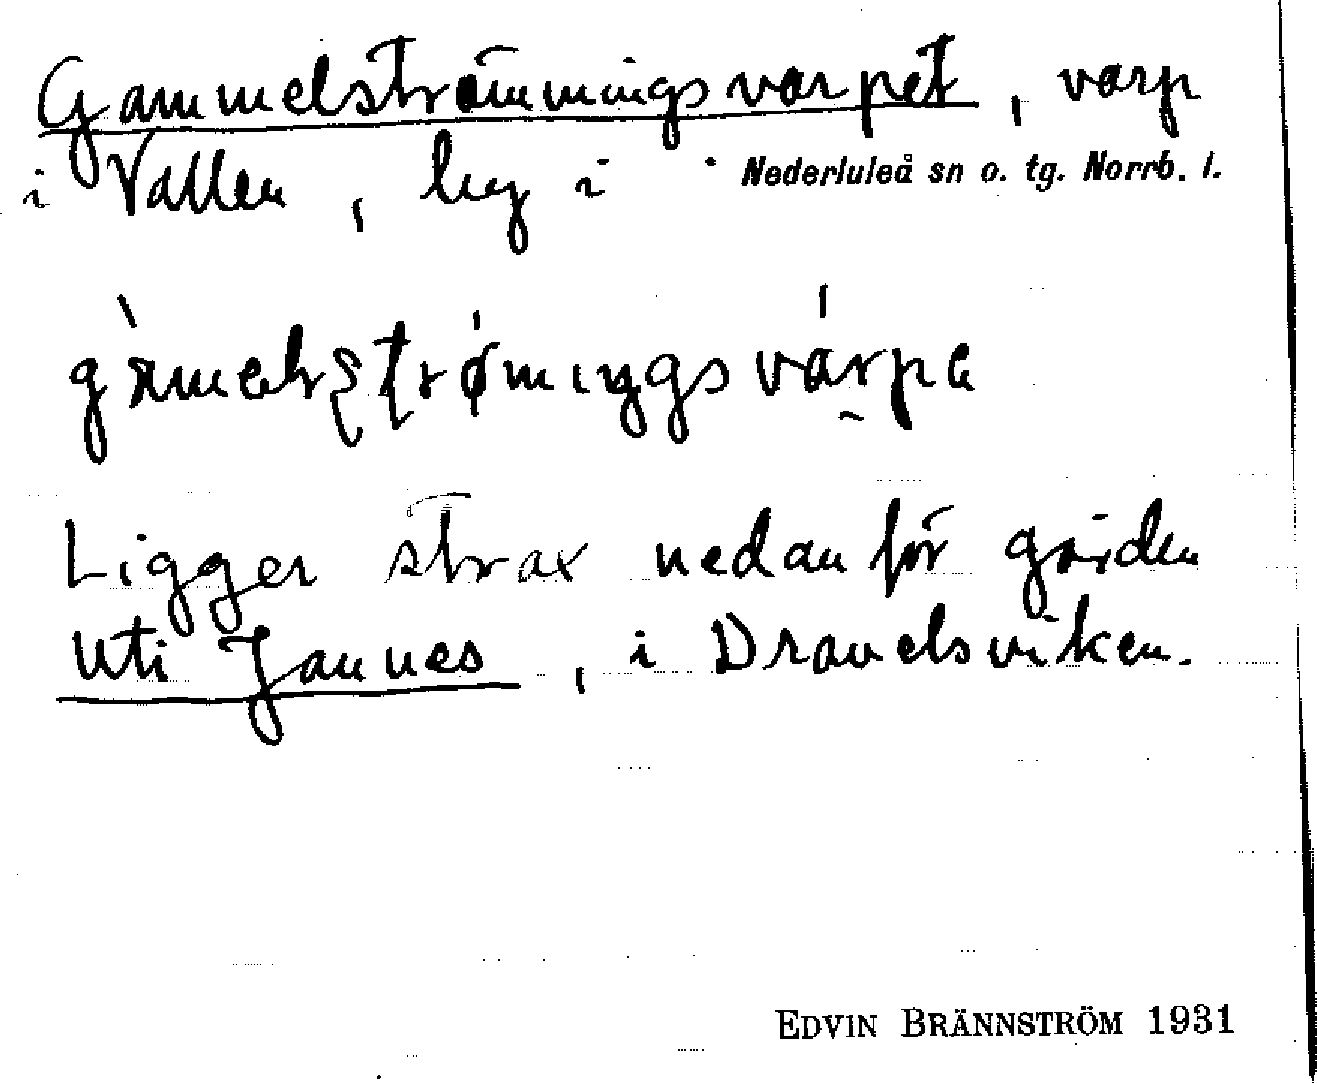 Gammelströmmingsvarpet, varp
i Vallen, by i Nederluleå sn o. tg. Norrb. l.
Ligger strax nedanför gården
Uti Jannes, i Dravelsviken.
EDVIN BRÄNNSTRÖM 1931